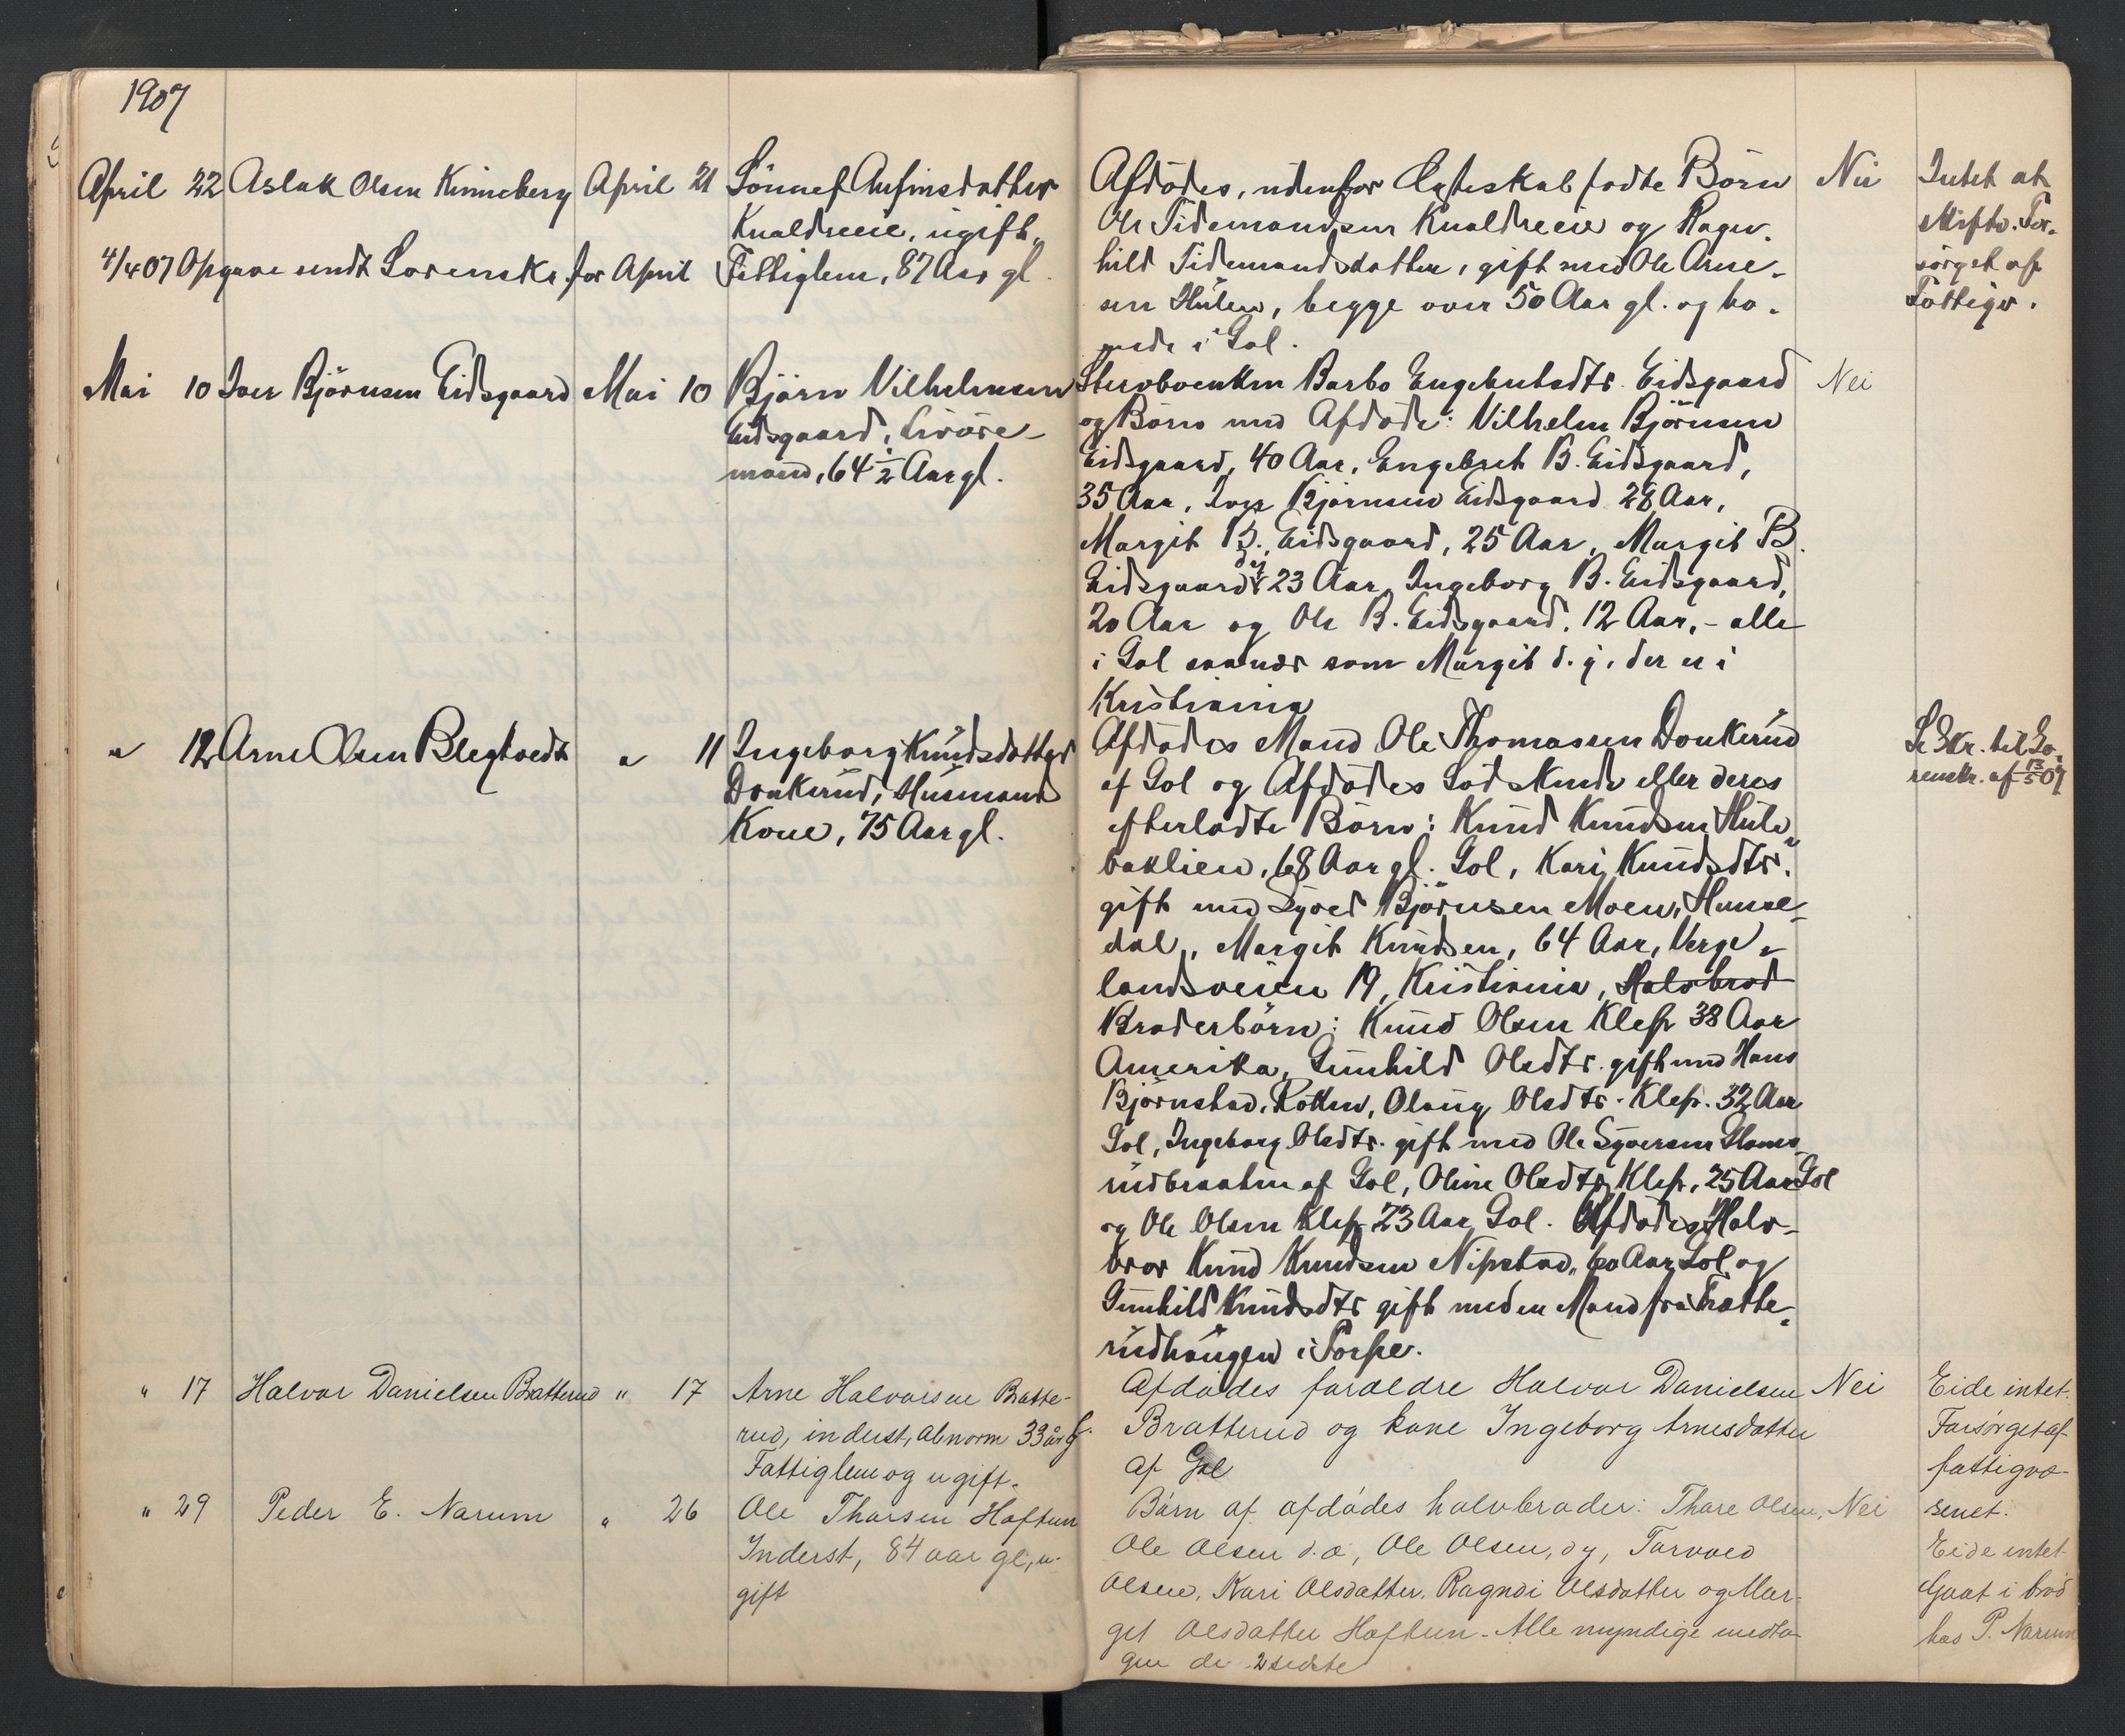 1907
April 22 Aslak Olsen Kinneberg April 21 Sönnef Anfinsdatter
Kvaldseie, ugift,
4/4 07 Opgave sendt Sorenskr. for April Fattiglem, 87 Aar gl.
Afdödes, udenfor Ægteskab fødte Börn
Ole Tidemandsen Kvaldseie og Ragn-
hild Tidemandsdatter, gift med Ole Arne-
sen Hulew, begge over 50 Aar gl. og bo-
ende i Gol.
Nei
Intet at
skifte. For-
sörget af
Fattigv.
Mai 10 Iver Björnsen Eidsgaard Mai 10 Björn Vilhelmsen
Eidsgaard, Livöre-
mand, 64 1/2 Aar gl.
Stervboenken Barbo Engebretsdtr. Eidsgaard
og Börn med Afdöde: Vilhelm Björnsen
Eidsgaard, 40 Aar, Engebret B. Eidsgaard,
35 Aar, Iver Björnsen Eidsgaard 28 Aar,
Margit B. Eidsgaard, 25 Aar, Margit B.
Eidsgaard dy 23 Aar, Ingeborg B. Eidsgaard,
20 Aar og Ole B. Eidsgaard, 12 Aar, - alle
i Gol saanær som Margit d. y. der er i
Kristiania
Nei
" 12 Arne Olsen Blegtvedt " 11 Ingeborg Knudsdatter
Donkerud, Husmands
Kone, 75 Aar gl.
Afdödes Mand Ole Thomassen Donkerud
af Gol og Afdödes Södskende eller deres
efterladte Börn: Knud Knudsen Hule-
baklien, 68 Aar gl. Gol, Kari Knudsdtr.
gift med Syver Björnsen Moen, Hemse-
dal, Margit Knudsen, 64 Aar, Verge-
landsveien 19, Kristiania, Halvbrod
Broderbörn: Knud Olsen Klep 38 Aar
Amerika, Gunhild Olsdtr. gift med Hans
Björnstad, Rotten, Olaug Olsdtr. Klep. 32 Aar
Gol, Ingeborg Olsdtr. gift med Ole Syversen
rudbraaten af Gol, Oline Olsdtr Klep, 25 Aar Gol
og Ole Olsen Klep 23 Aar Gol. Afdödes Halv-
bror Knud Knudsen Nipstad, 60 Aar Gol og
Gunhild Knudsdtr gift med en Mand fra Trötte-
rudhaugen i Torpe.
Se Skr. til So-
renskr. af 13/5 07
" 17 Halvor Danielsen Bratterud " 17 Arne Halvorsen Bratte-
rud, inderst, abnorm 33 år g.
Fattiglem og ugift.
Afdødes forældre Halvor Danielsen
Bratterud og kone Ingeborg Arnesdatter
af Gol
Nei
Eide intet.
Forsørget af
fattigvæ-
senet.
" 29 Peder E. Narum " 26 Ole Thorsen Hoftun
Inderst, 84 aar gl, u-
gift
Börn af afdødes halvbroder: Thore Olsen,
Ole Olsen d. æ, Ole Olsen, dy, Torvald
Olsen, Kari Olsdatter, Ragndi Olsdatter og Mar-
get Olsdatter Hoftun. Alle myndige undta-
gen de 2 sidste
Nei
Eide intet.
Gaat i brød
hos P. Narum